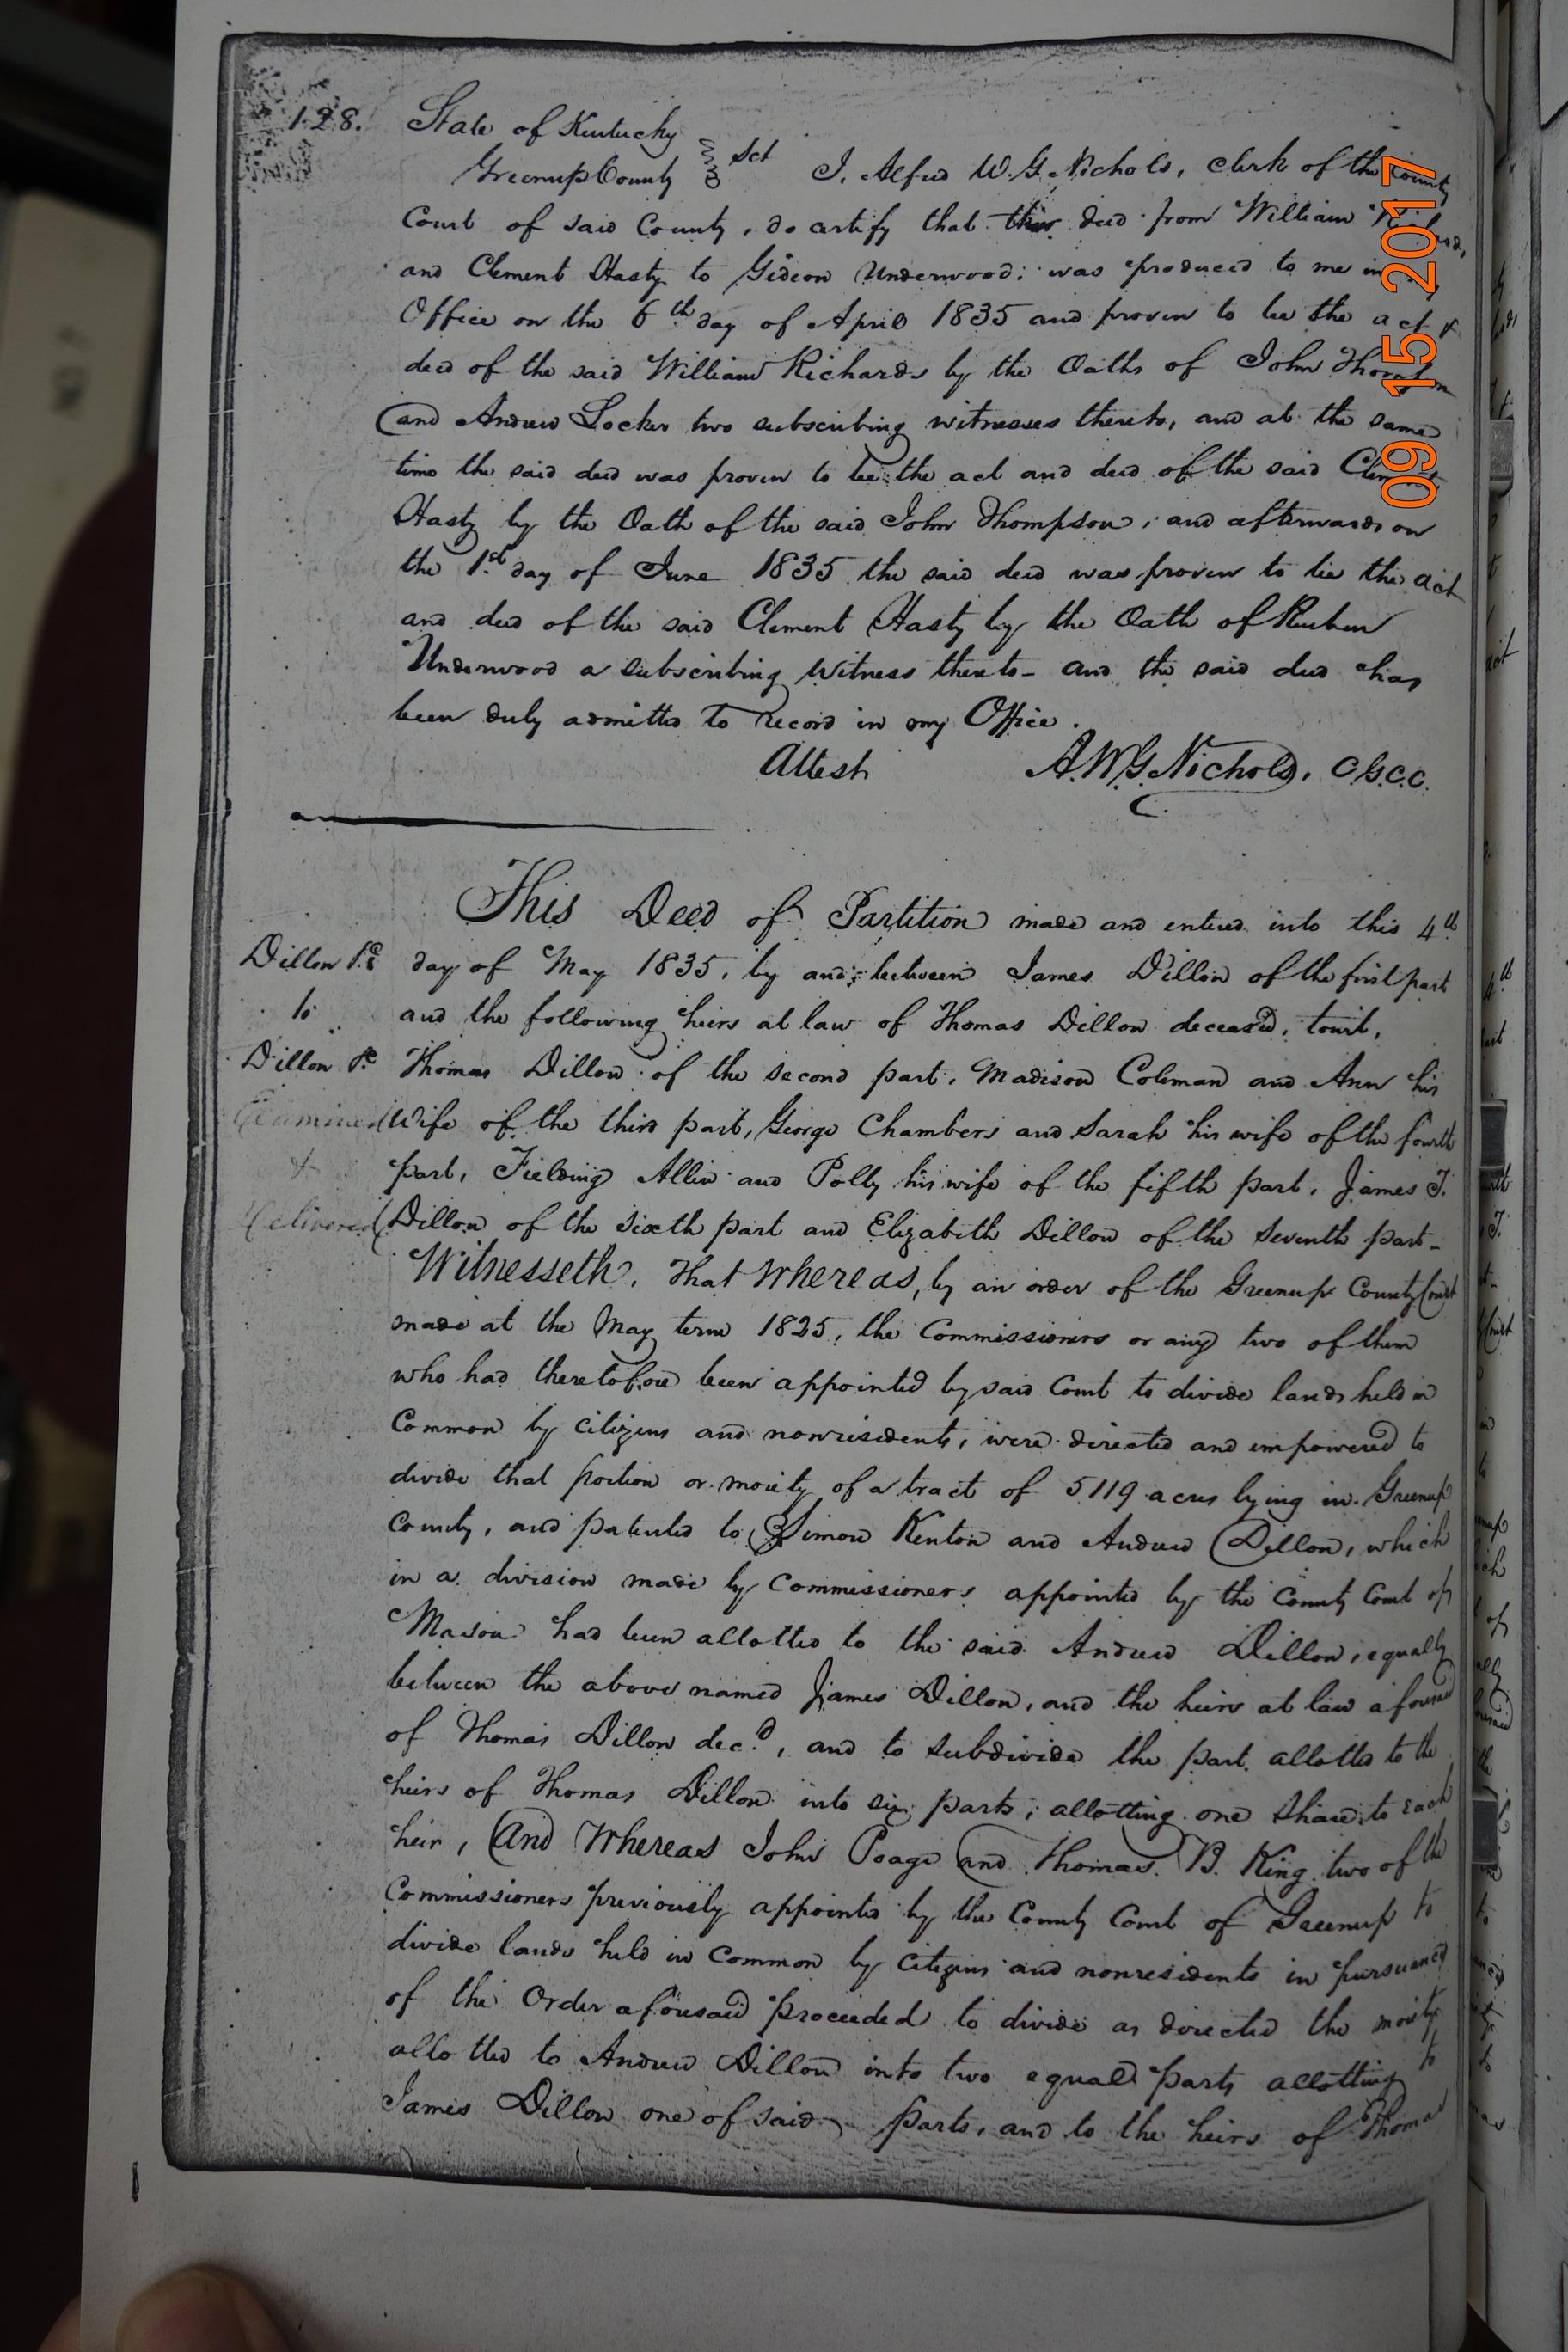 128. State of Kentucky
Greenup County Sct I. Alfred W. G. Nichols, clerk of the County
Court of said County, do certify that this deed from William
and Clement Hasty to Gideon Underwood; was produced to me in
Office on the 6th day of April 1835 and proven to be the act &
deed of the said William Richards by the Oaths of John
and Andrew Locker two subscribing witnesses thereto, and at the same
time the said deed was proven to be the act and deed of the said Clement
Hasty by the Oath of the said John Thompson; and afterwards on
the 1st day of June 1835 the said deed was proven to be the act
and deed of the said Clement Hasty by the Oath of Reuben
Underwood a subscribing Witness thereto - and the said deed has
been duly admitted to record in my Office.
Attest A. W. G. Nichols, C.G.C.C.
This Deed of Partition made and entered into this 4th
Dillon &c day of May 1835, by and between James Dillon of the first part
to and the following heirs at law of Thomas Dillon deceased, towit,
Dillon &c Thomas Dillon of the second part, Madison Coleman and Ann his
Examined Wife of the third part, George Chambers and Sarah his wife of the fourth
& part, Fielding Allin and Polly his wife of the fifth part, James T.
Delivered Dillon of the sixth part and Elizabeth Dillon of the seventh part -
Witnesseth, That Whereas, by an order of the Greenup County Court
made at the May term 1835, the Commissioners or any two of them
who had theretofore been appointed by said Court to divide lands held in
Common by citizens and nonresidents, were directed and impowered to
divide that portion or moiety of a tract of 5119 acres lying in Greenup
County, and patented to Simon Kenton and Andrew Dillon, which
in a division made by Commissioners appointed by the County Court of
Mason had been allotted to the said Andrew Dillon, equally
between the above named James Dillon, and the heirs at law aforesaid
of Thomas Dillon dec.d, and to subdivide the part allotted to the
heirs of Thomas Dillon into six parts; allotting one share to each
heir, And Whereas John Poage and Thomas B. King two of the
Commissioners previously appointed by the County Court of Greenup to
divide lands held in Common by citizens and nonresidents in pursuance
of the Order aforesaid proceeded to divide as directed the moiety
allotted to Andrew Dillon into two equal parts allotting to
James Dillon one of said parts, and to the heirs of Thomas
09 15 2017